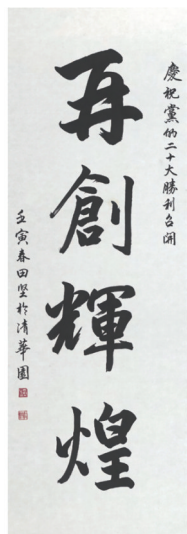 慶祝黨的二十大勝利召開
再創輝煌
壬寅春田堅於清華園